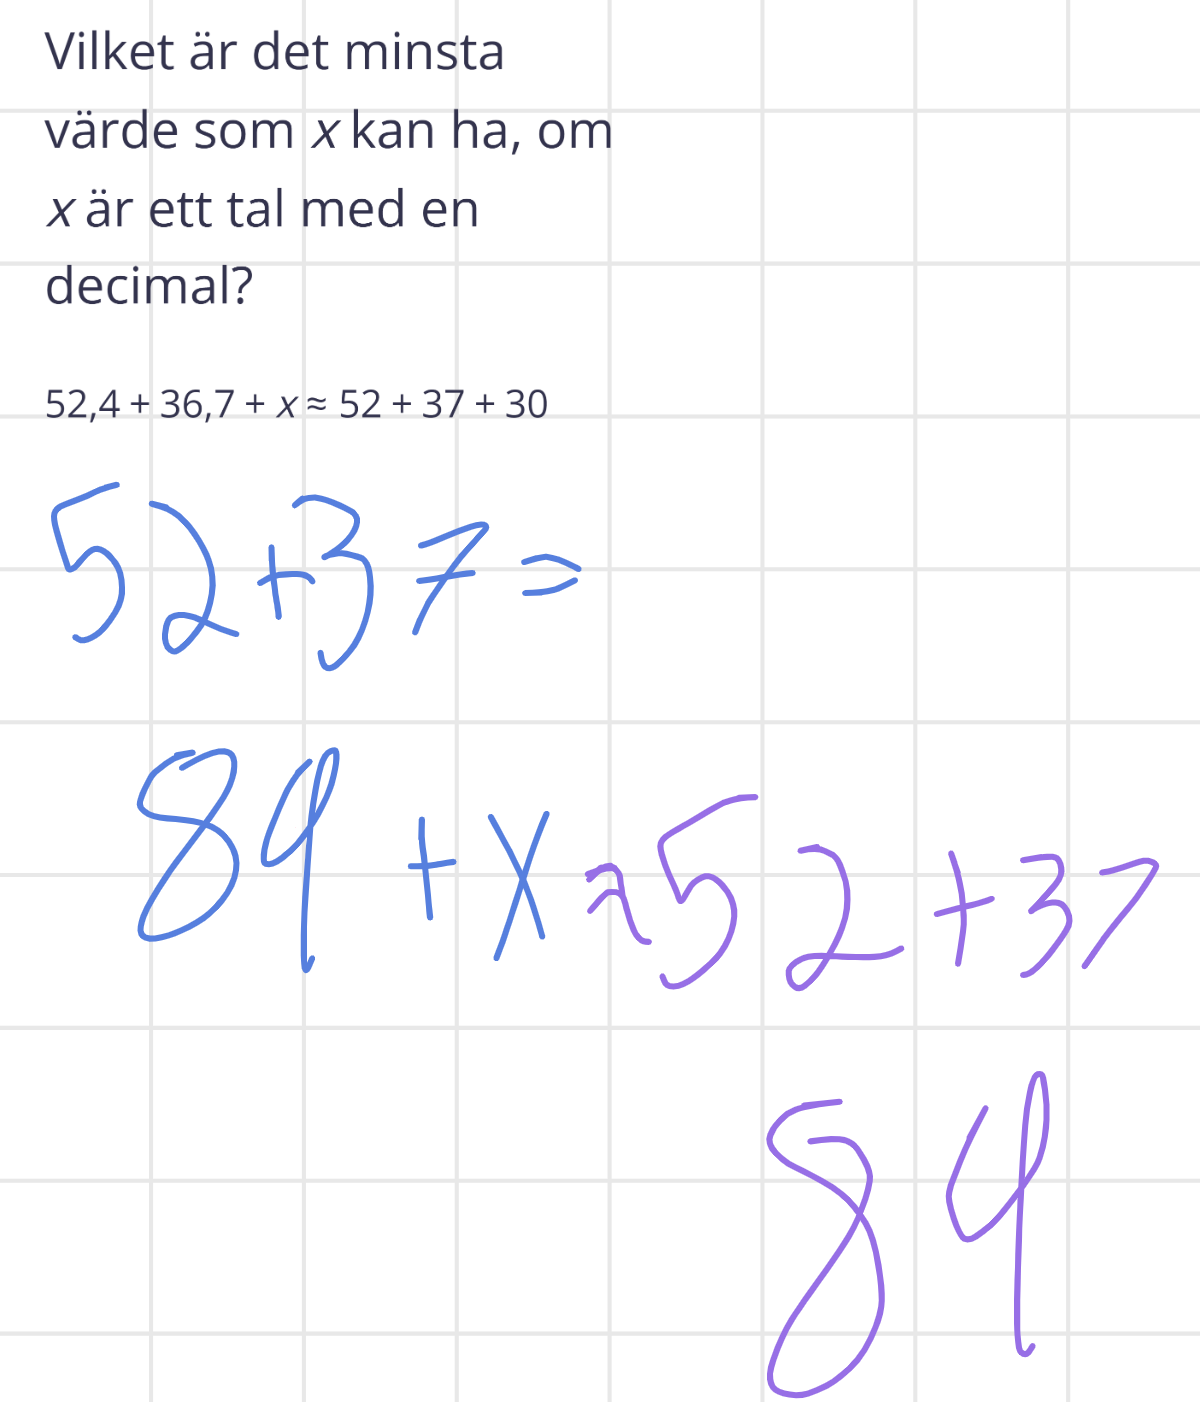 Vilket är det minsta
värde som x kan ha, om
x är ett tal med en
decimal?
52,4 + 36,7 + x ≈ 52 + 37 + 30
52+37=
89 + x ≈ 52+37
89